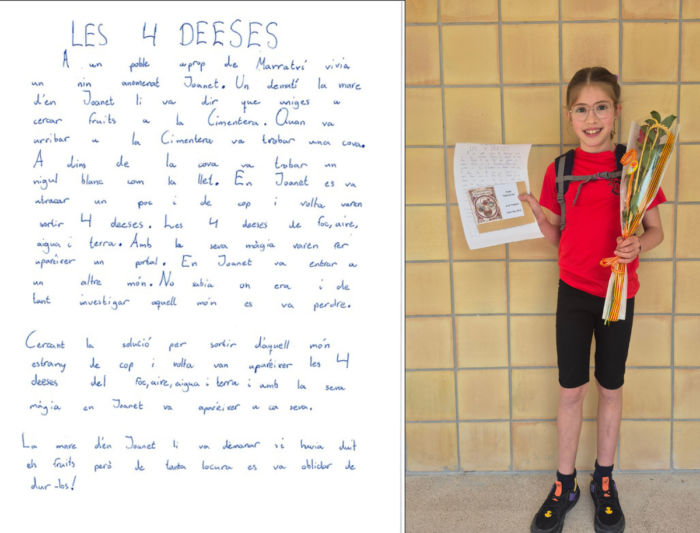 LES 4 DEESES
A un poble aprop de Marratxí vivia
un nin anomenat Joanet. Un dematí la mare
d'en Joanet li va dir que anigés a
cercar fruits a la Cimentera. Quan va
arribar a la Cimentera va trobar una cova.
A dins de la cova va trobar un
nigul blanc com la llet. En Joanet es va
atracar un poc i de cop i volta varen
sortir 4 deeses. Les 4 deeses de foc, aire,
aigua i terra. Amb la seva màgia varen fer
aparèixer un portal. En Joanet va entrar a
un altre món. No sabia on era i de
tant investigar aquell món es va perdre.
Cercant la solució per sortir d'aquell món
estrany de cop i volta van aparèixer les 4
deeses del foc, aire, aigua i terra i amb la seva
màgia en Joanet va aparèixer a ca seva.
La mare d'en Joanet li va demanar si havia duit
els fruits però de tanta locura es va oblidar de
dur-los!